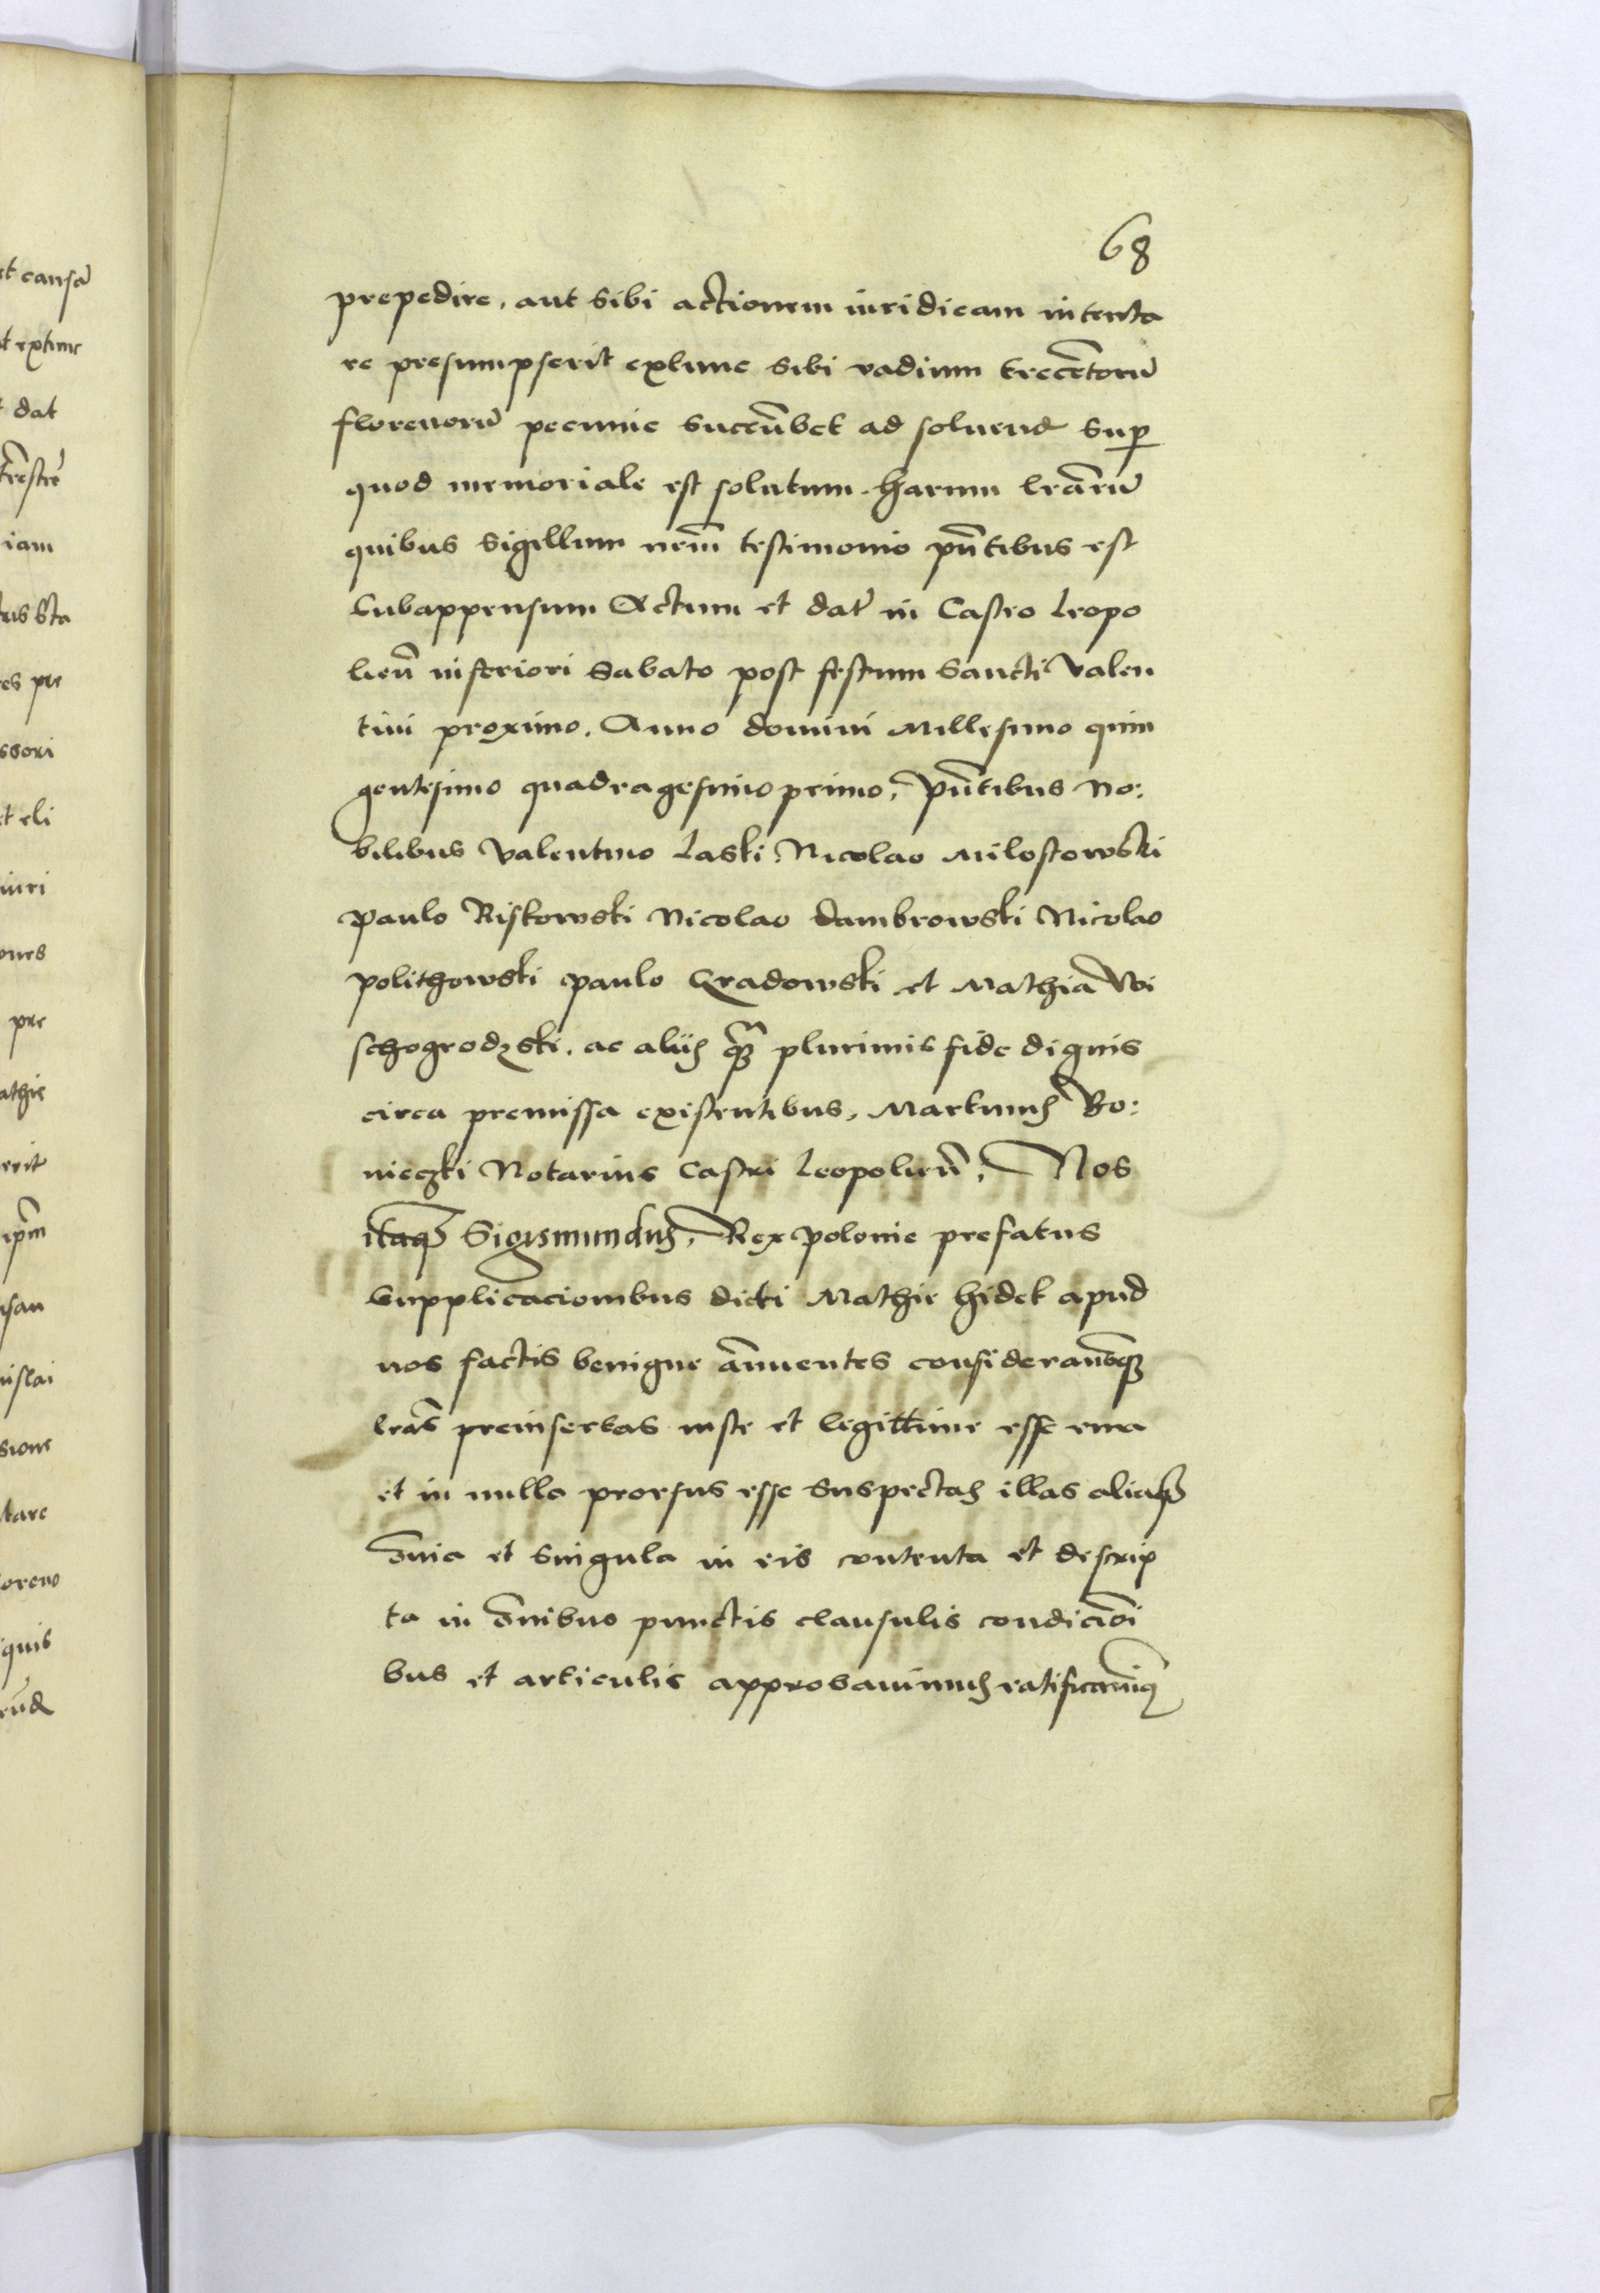 68
prepedire, aut sibi actionem iuridicam intenta
re presumpserit extunc sibi vadium trecētorū
florenorū pecunie succūbet ad soluend sup
quod memoriale est solutum. harum lrārū
quibus sigillum nrm̄ testimonio pn̄tibus est
subappensum Actum et dat in Castro Leopo
lien̄ inferiori Sabato post festum Sancti Valen
tini proximo. Anno domini Millesimo quin
gentesimo quadragesimo primo, pn̄tibus No:
bilibus Valentino Laski, Nicolao Milostowski
Paulo Riskowski Nicolao dambrowski Nicolao
polithowski Paulo Gradowski et Mathia Wi
schogrodzski. ac alijs q̄ꝫ plurimis fide dignis
circa premissa existentibus, Martinus Bo:
nieczki Notarius Castri Leopolien̄, Nos
itaqꝫ Sigismundus, Rex Polonie prefatus
supplicacionibus dicti Mathie hidek apud
nos factis benigne ānuentes considerantesqꝫ
lrās preinsertas iuste et legittime esse ema
et in nullo prorsus esse suspectas illas aliaqꝫ
ōnia et singula in eis contenta et descrip
ta in ōnibus punctis clausulis condicioī
bus et articulis approbauimus ratificauimusqꝫ
et causā
et extunc
dat
iam
es pre
ssori
iuri
ones
pre
athie
erit
ipm̄
sione
tare
loreno
iquis